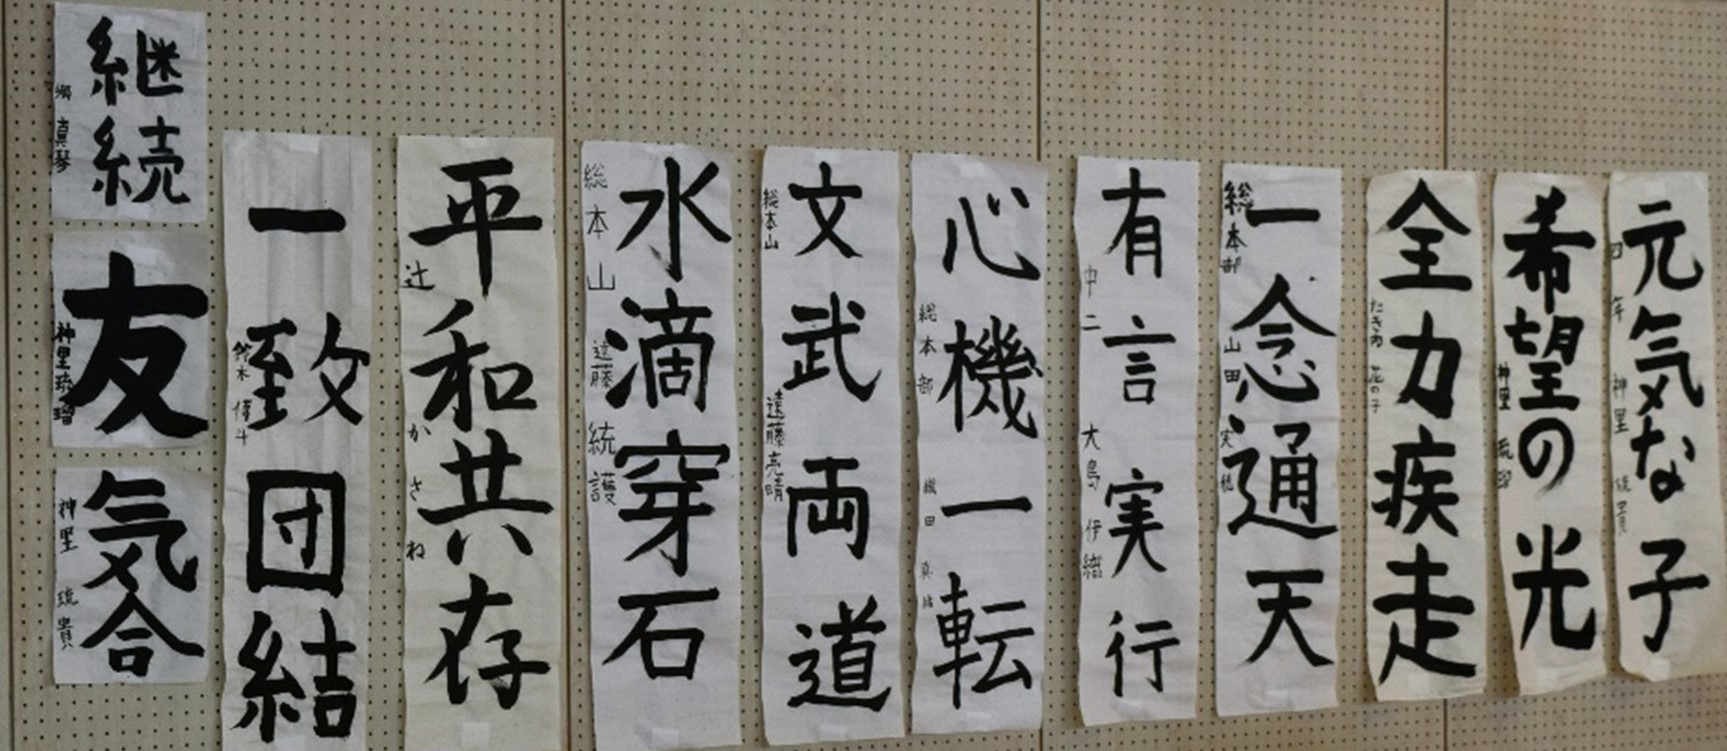 元気な子
四年 神里 琉貴
希望の光
神里 琉瑠
全力疾走
たき内 花の子
一念通天
総本部 山田 実穂
有言実行
中二 大島 伊織
心機一転
総本部 織田 真結
文武両道
総本山 遠藤亮晴
水滴穿石
総本山 遠藤統護
平和共存
辻 かさね
一致団結
鈴木
継続
真琴
友
神里琉瑠
気合
神里 琉貴